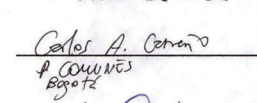 Carlos A. Carreño
P. COMUNES
Bogotá